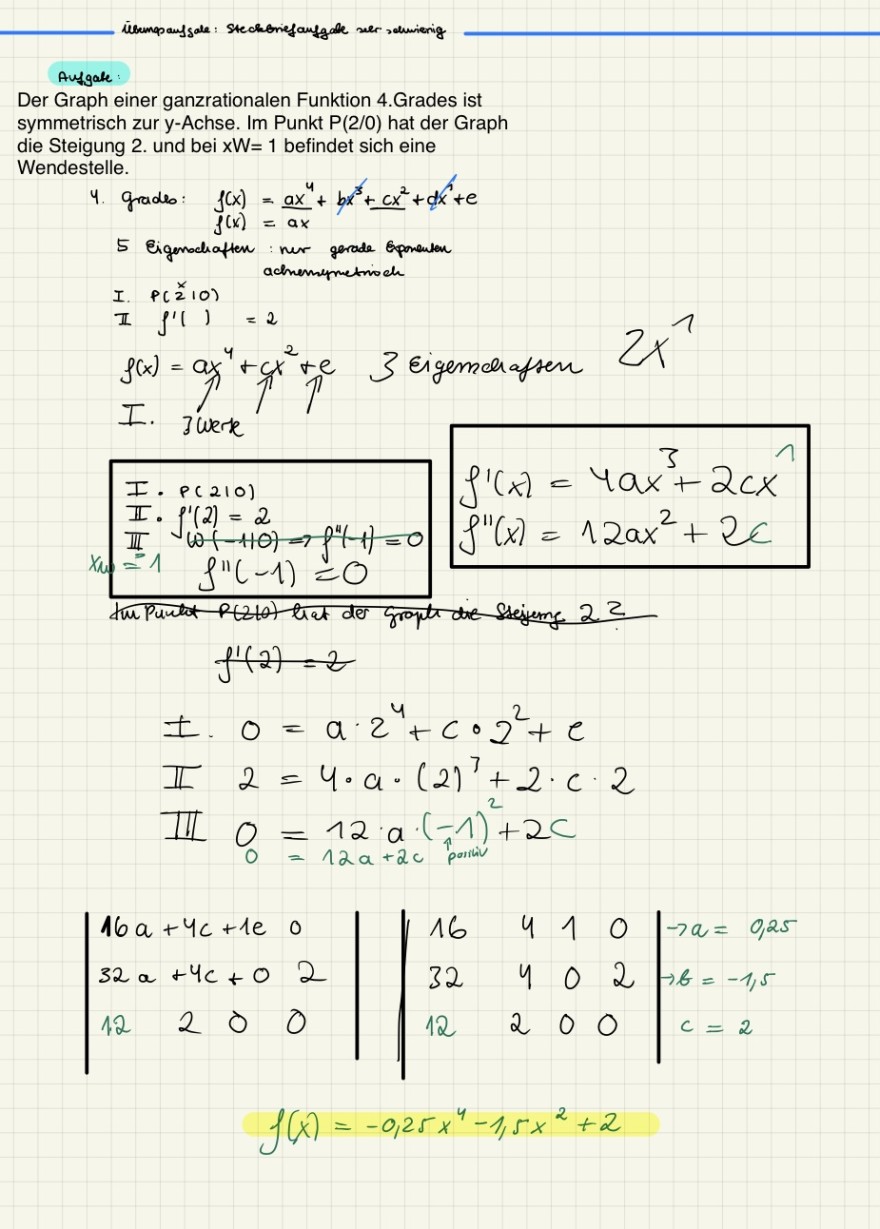 Übungsaufgabe: Steckbriefaufgabe sehr schwierig
Aufgabe:
Der Graph einer ganzrationalen Funktion 4.Grades ist
symmetrisch zur y-Achse. Im Punkt P(2/0) hat der Graph
die Steigung 2. und bei xW= 1 befindet sich eine
Wendestelle.
4. grades: f(x) = ax⁴ + bx³ + cx² + dx¹ + e
f(x) = ax
5 Eigenschaften : nur gerade Exponenten
achsensymetrisch
x
I. P(2|0)
II f'( ) = 2
f(x) = ax⁴ + cx² + e 3 Eigenschaften 2x¹
I. 3 Werte
I. P(2|0)
II. f'(2) = 2
III W(-1|0) => f''(-1) = 0
xw = 1 f''(-1) = 0
f'(x) = 4ax³ + 2cx¹
f''(x) = 12ax² + 2c
Im Punkt P(2|0) hat der Graph die Steigung 2?
f'(2) = 2
I. 0 = a · 2⁴ + c · 2² + e
II 2 = 4 · a · (2)³ + 2 · c · 2
III 0 = 12 · a · (-1)² + 2c
0 = 12a + 2c ↑ positiv
16a + 4c + 1e 0
32a + 4c + 0 2
12 2 0 0
16 4 1 0 → a = 0,25
32 4 0 2 → b = -1,5
12 2 0 0 c = 2
f(x) = -0,25x⁴ - 1,5x² + 2